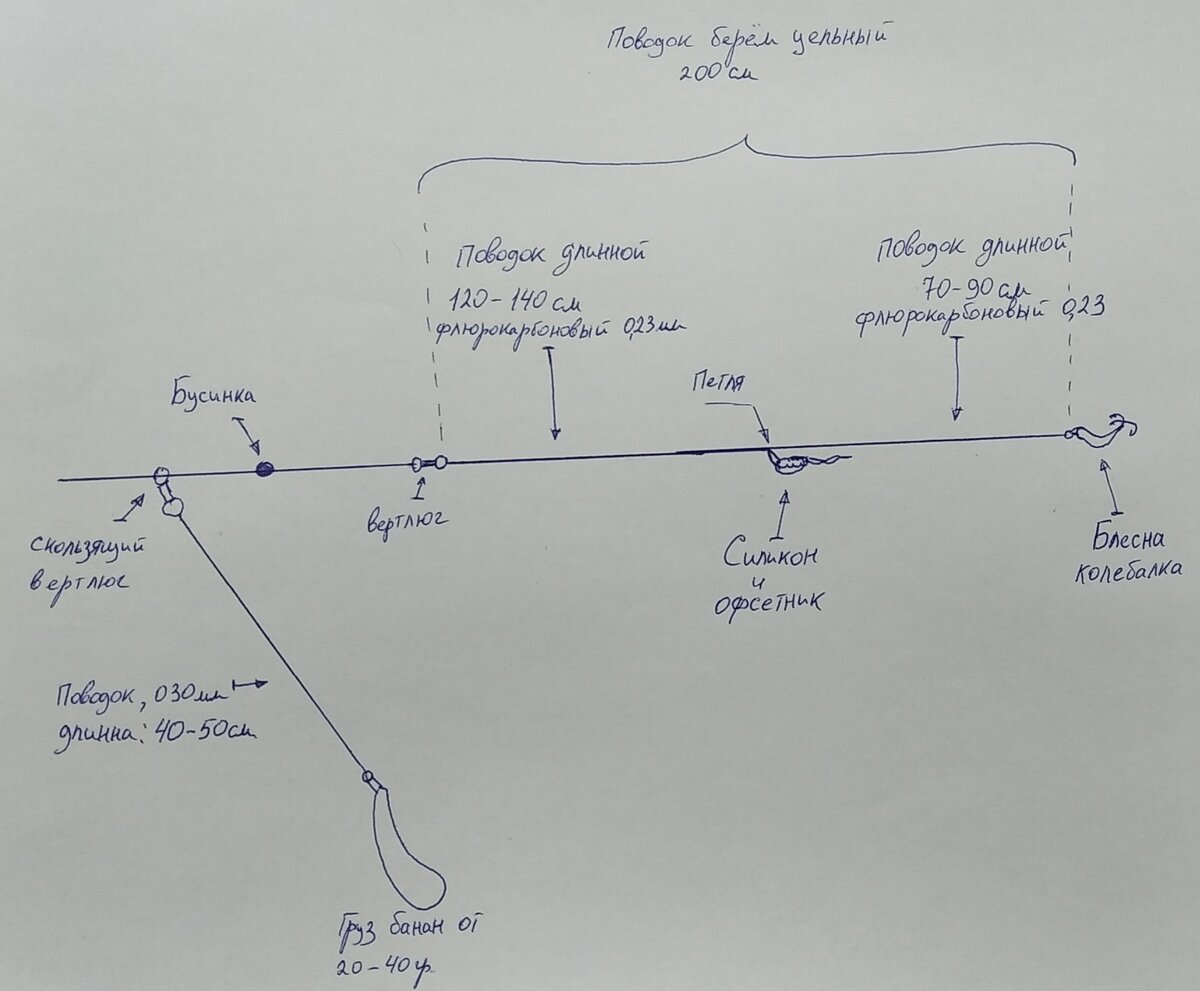 Поводок берём цельный
200 см
Поводок длинной
120-140 см
флюрокарбоновый 0,23 мм
Поводок длинной
70-90 см
флюрокарбоновый 0,23
Бусинка
Петля
вертлюг
скользящий
вертлюг
Силикон
и
офсетник
Блесна
колебалка
Поводок, 030 мм
длинна: 40-50 см
Груз банан от
20-40 гр.